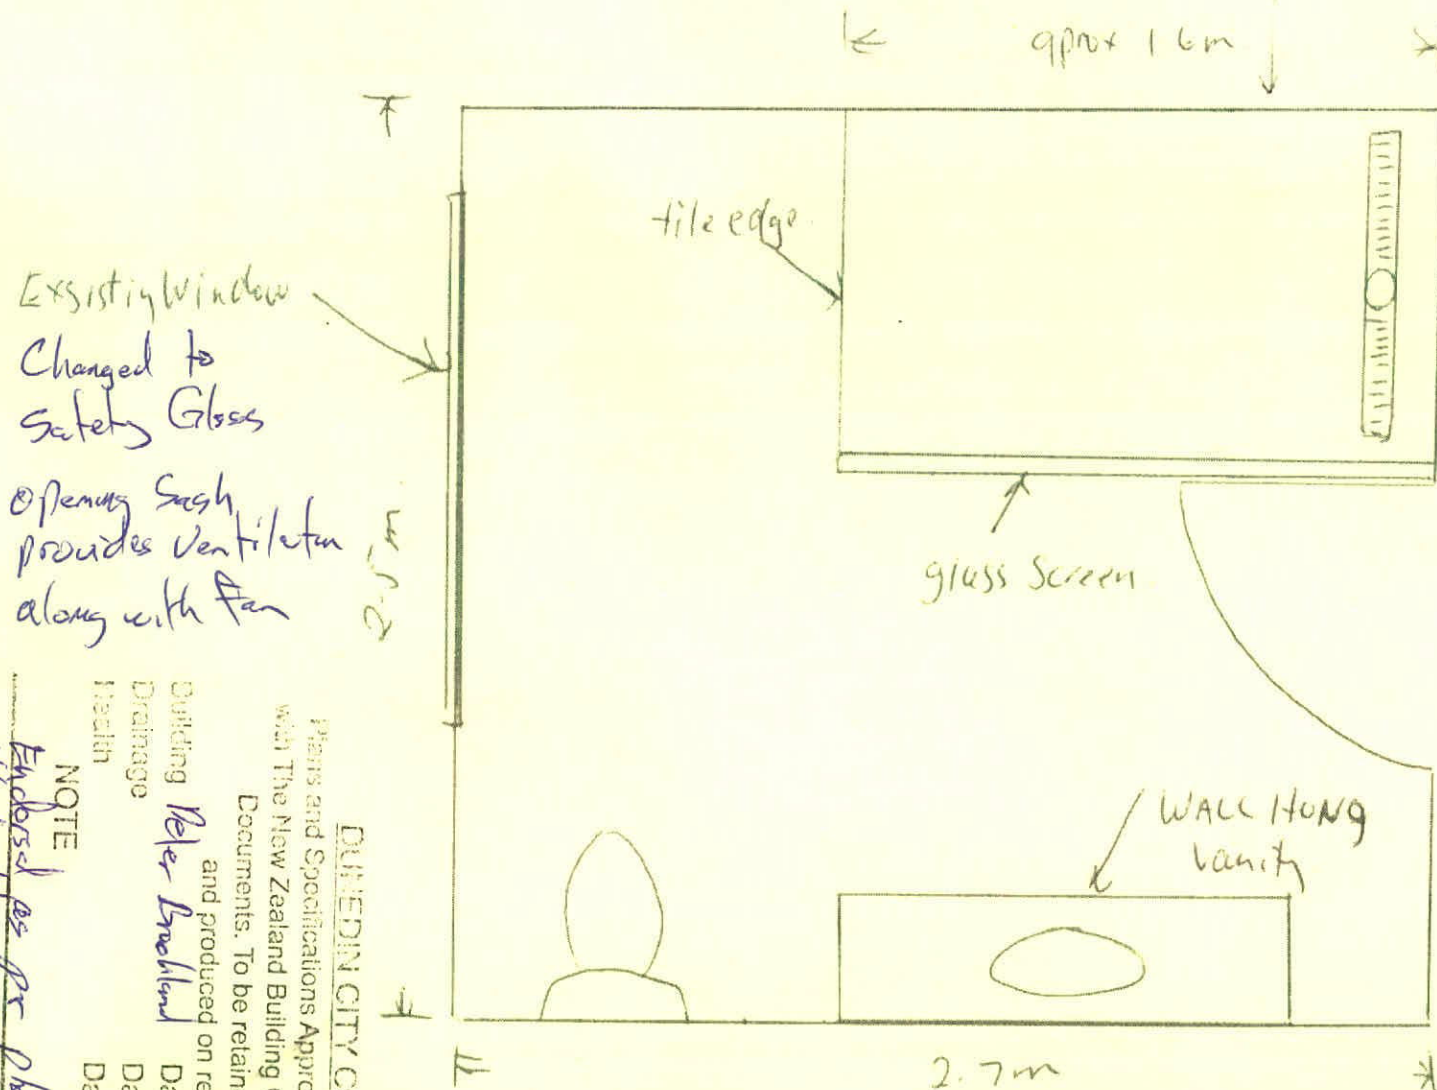 aprox 1 6m
tile edge
ExsistinWindow
Changed to
Safety Glass
Opening Sash
provides Ventilation
along with Fan
2.5m
glass Screen
WALL HUNG
Vanity
2.7m
DUNEDIN CITY C
Plans and Specifications Appro
with The New Zealand Building
Documents. To be retain
and produced on re
Building Peter Da
Drainage Da
Health Da
NOTE
Endorsed as pr